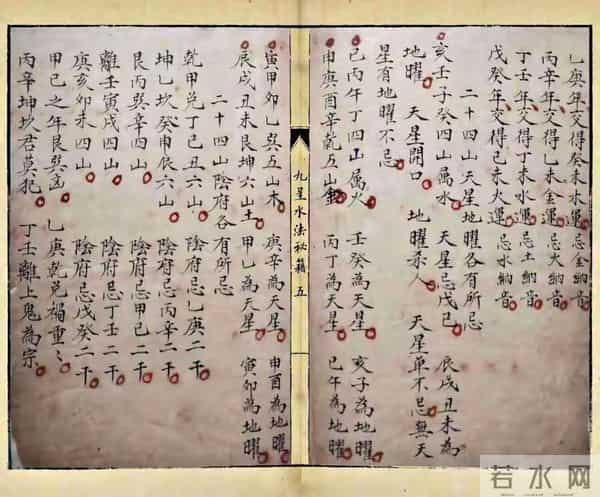 乙庚年交得癸未木運 忌金納音
丙辛年交得乙未金運 忌火納音
丁壬年交得丁未水運 忌土納音
戊癸年交得己未火運 忌水納音
二十四山天星地曜各有所忌
亥壬子癸四山属水 天星忌戊己 辰戌丑未為
地曜 天星開口 地曜杀人 天星单不忌無天
星有地曜不忌
巳丙午丁四山属火 壬癸為天星 亥子為地曜
申庚酉辛乾五山金 丙丁為天星 巳午為地曜
九星水法秘籍 五
寅甲卯乙巽五山木 庚辛為天星 申酉為地曜
辰戌丑未艮坤六山土 甲乙為天星 寅卯為地曜
二十四山陰府各有所忌
乾甲兑丁巳丑六山 陰府忌乙庚二干
坤乙坎癸申辰六山 陰府忌丙辛二干
艮丙巽辛四山 陰府忌甲己二干
離壬寅戌四山 陰府忌丁壬二干
庚亥卯未四山 陰府忌戊癸二干
甲己之年艮巽凶 乙庚乾兑禍重々
丙辛坤坎君莫犯 丁壬離上鬼為宗
若水网